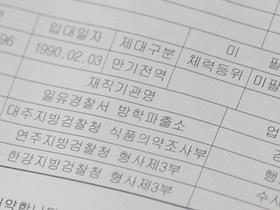 입대일자 제대구분 미 필
96 1990.02.03 만기전역 체력등위 미필
재직기관명
일유경찰서 방학파출소 업
대주지방검찰청 식품의약조사부
연주지방검찰청 형사제3부 행
한강지방검찰청 형사제3부 수사